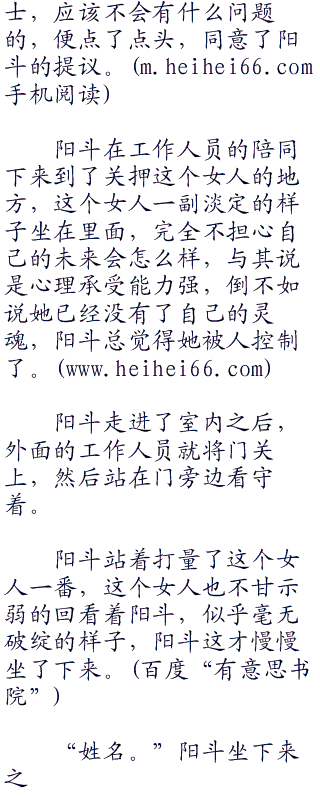 士，应该不会有什么问题
的，便点了点头，同意了阳
斗的提议。(m.heihei66.com
手机阅读)
阳斗在工作人员的陪同
下来到了关押这个女人的地
方，这个女人一副淡定的样
子坐在里面，完全不担心自
己的未来会怎么样，与其说
是心理承受能力强，倒不如
说她已经没有了自己的灵
魂，阳斗总觉得她被人控制
了。(www.heihei66.com)
阳斗走进了室内之后，
外面的工作人员就将门关
上，然后站在门旁边看守
着。
阳斗站着打量了这个女
人一番，这个女人也不甘示
弱的回看着阳斗，似乎毫无
破绽的样子，阳斗这才慢慢
坐了下来。(百度“有意思书
院”)
“姓名。”阳斗坐下来
之